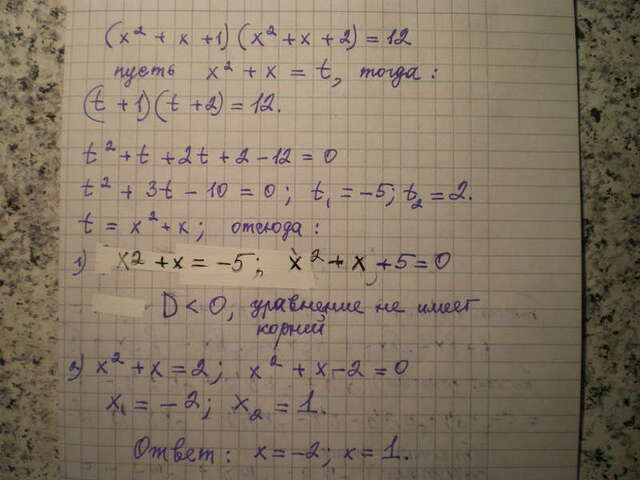 (x² + x + 1)(x² + x + 2) = 12
пусть x² + x = t, тогда:
(t + 1)(t + 2) = 12.
t² + t + 2t + 2 - 12 = 0
t² + 3t - 10 = 0; t₁ = -5; t₂ = 2.
t = x² + x; отсюда:
1) x² + x = -5; x² + x + 5 = 0
D < 0, уравнение не имеет
корней
2) x² + x = 2; x² + x - 2 = 0
x₁ = -2; x₂ = 1.
Ответ: x = -2; x = 1.